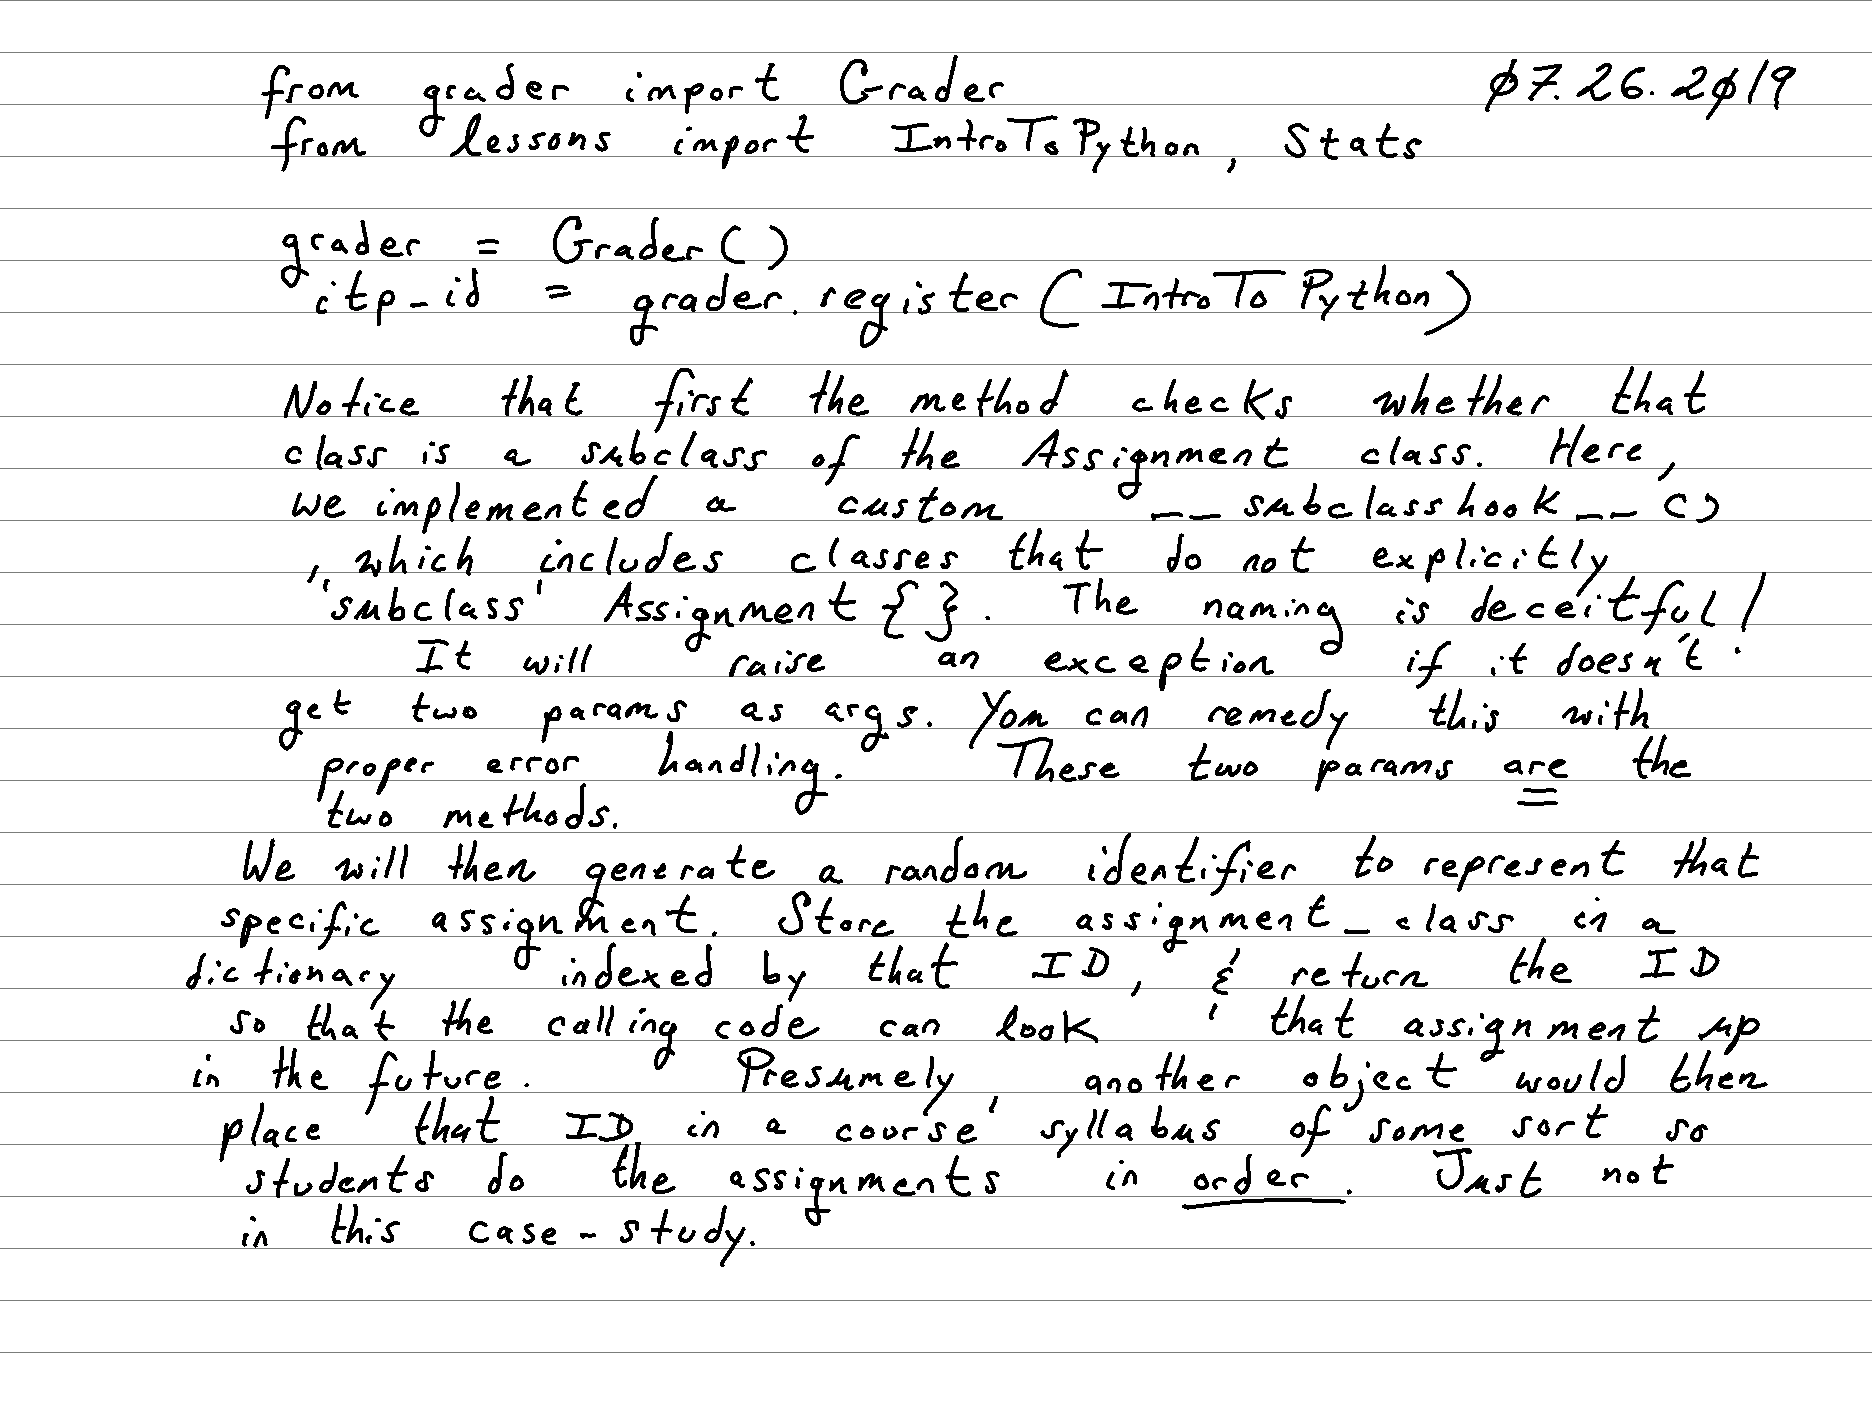 from grader import Grader 07.26.2019
from lessons import IntroToPython, Stats
grader = Grader()
itp_id = grader.register(IntroToPython)
Notice that first the method checks whether that
class is a subclass of the Assignment class. Here,
we implemented a custom __subclasshook__()
, which includes classes that do not explicitly
'subclass' Assignment{}. The naming is deceitful!
It will raise an exception if it doesn't
get two params as args. You can remedy this with
proper error handling. These two params are the
two methods.
We will then generate a random identifier to represent that
specific assignment. Store the assignment_class in a
dictionary indexed by that ID, & return the ID
so that the calling code can look that assignment up
in the future. Presumely, another object would then
place that ID in a course syllabus of some sort so
students do the assignments in order. Just not
in this case-study.